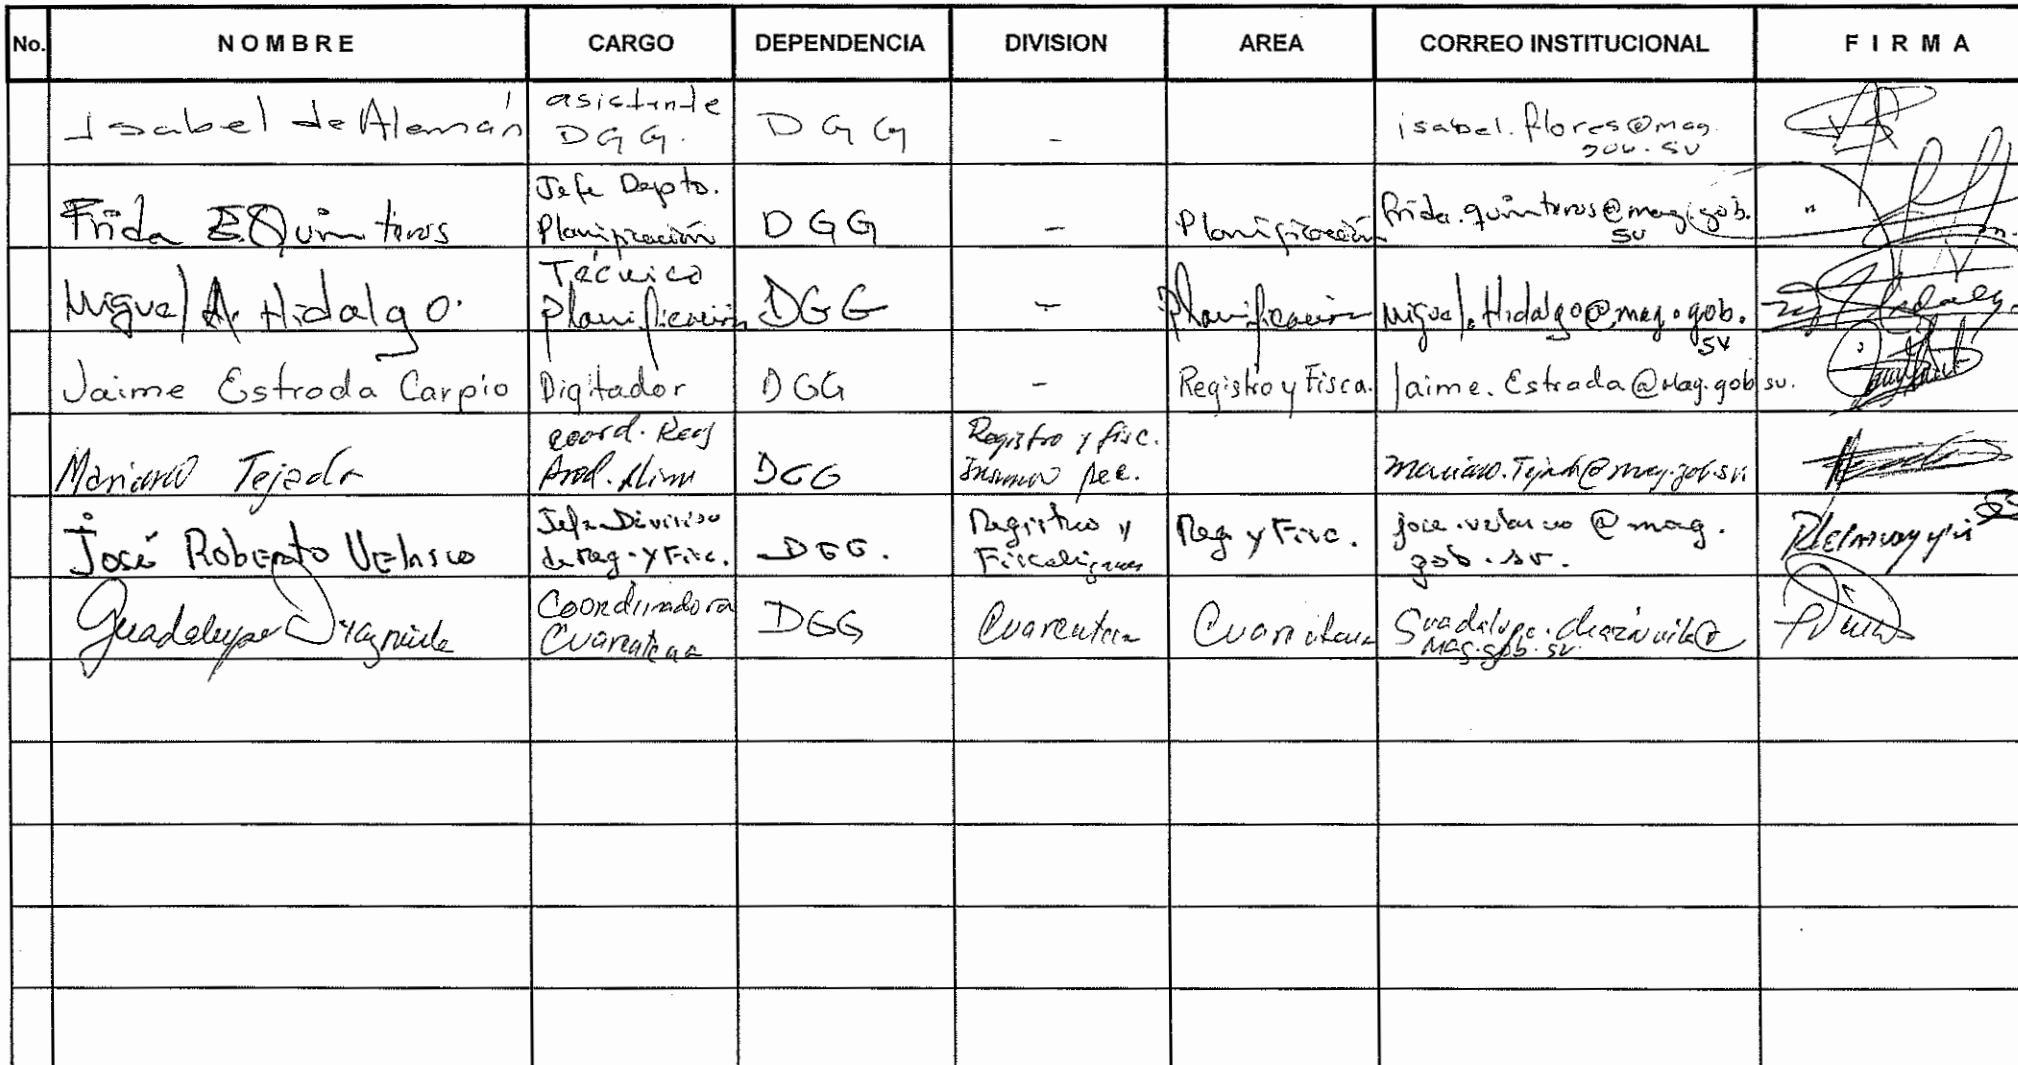 No. NOMBRE CARGO DEPENDENCIA DIVISION AREA CORREO INSTITUCIONAL FIRMA
Isabel de Alemán asistente DGG. DGG - isabel.flores@mag.gov.sv
Frida E Quinteros Jefe Depto. Planificación DGG - Planificación frida.quinteros@mag.gob.sv
Miguel A. Hidalgo. Técnico Planificación DGG - Planificación Miguel.Hidalgo@mag.gob.sv
Jaime Estrada Carpio Digitador DGG - Registro y Fisca. Jaime.Estrada@Mag.gob.sv.
Mariano Tejada coord. Reg Prod. Alim DGG Registro y fisc. Insumo pec. mariano.Tejada@mag.gob.sv
José Roberto Velasco Jefe División de Reg. y Fisc. DGG. Registro y Reg y Fisc. jose.velasco@mag.gob.sv.
Guadalupe Coordinadora Cuarentena DGG Cuarentena Cuarentena